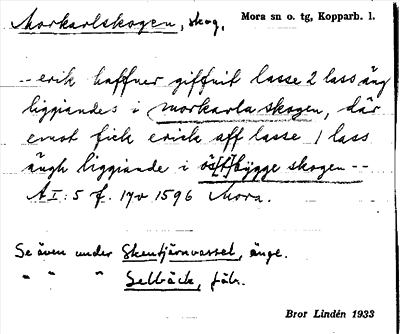 Morkarlskogen, skog, Mora sn o. tg, Kopparb. l.
-- erik haffner giffuit lasse 2 lass äng
liggiandes i morkarla skogen, där
emot fick erick aff lasse 1 lass
ängh liggiande i ös[t]bygge skogen --
A I: 5 f. 17v 1596 Mora.
Se även under Skentjärnvasset, änge.
" " " Selbäck, fäb.
Bror Lindén 1933